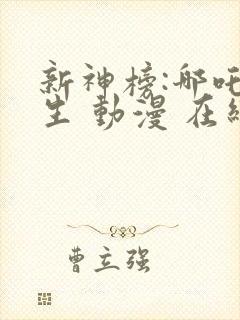 新神榜:哪吒
生 動漫 在線
曹立强